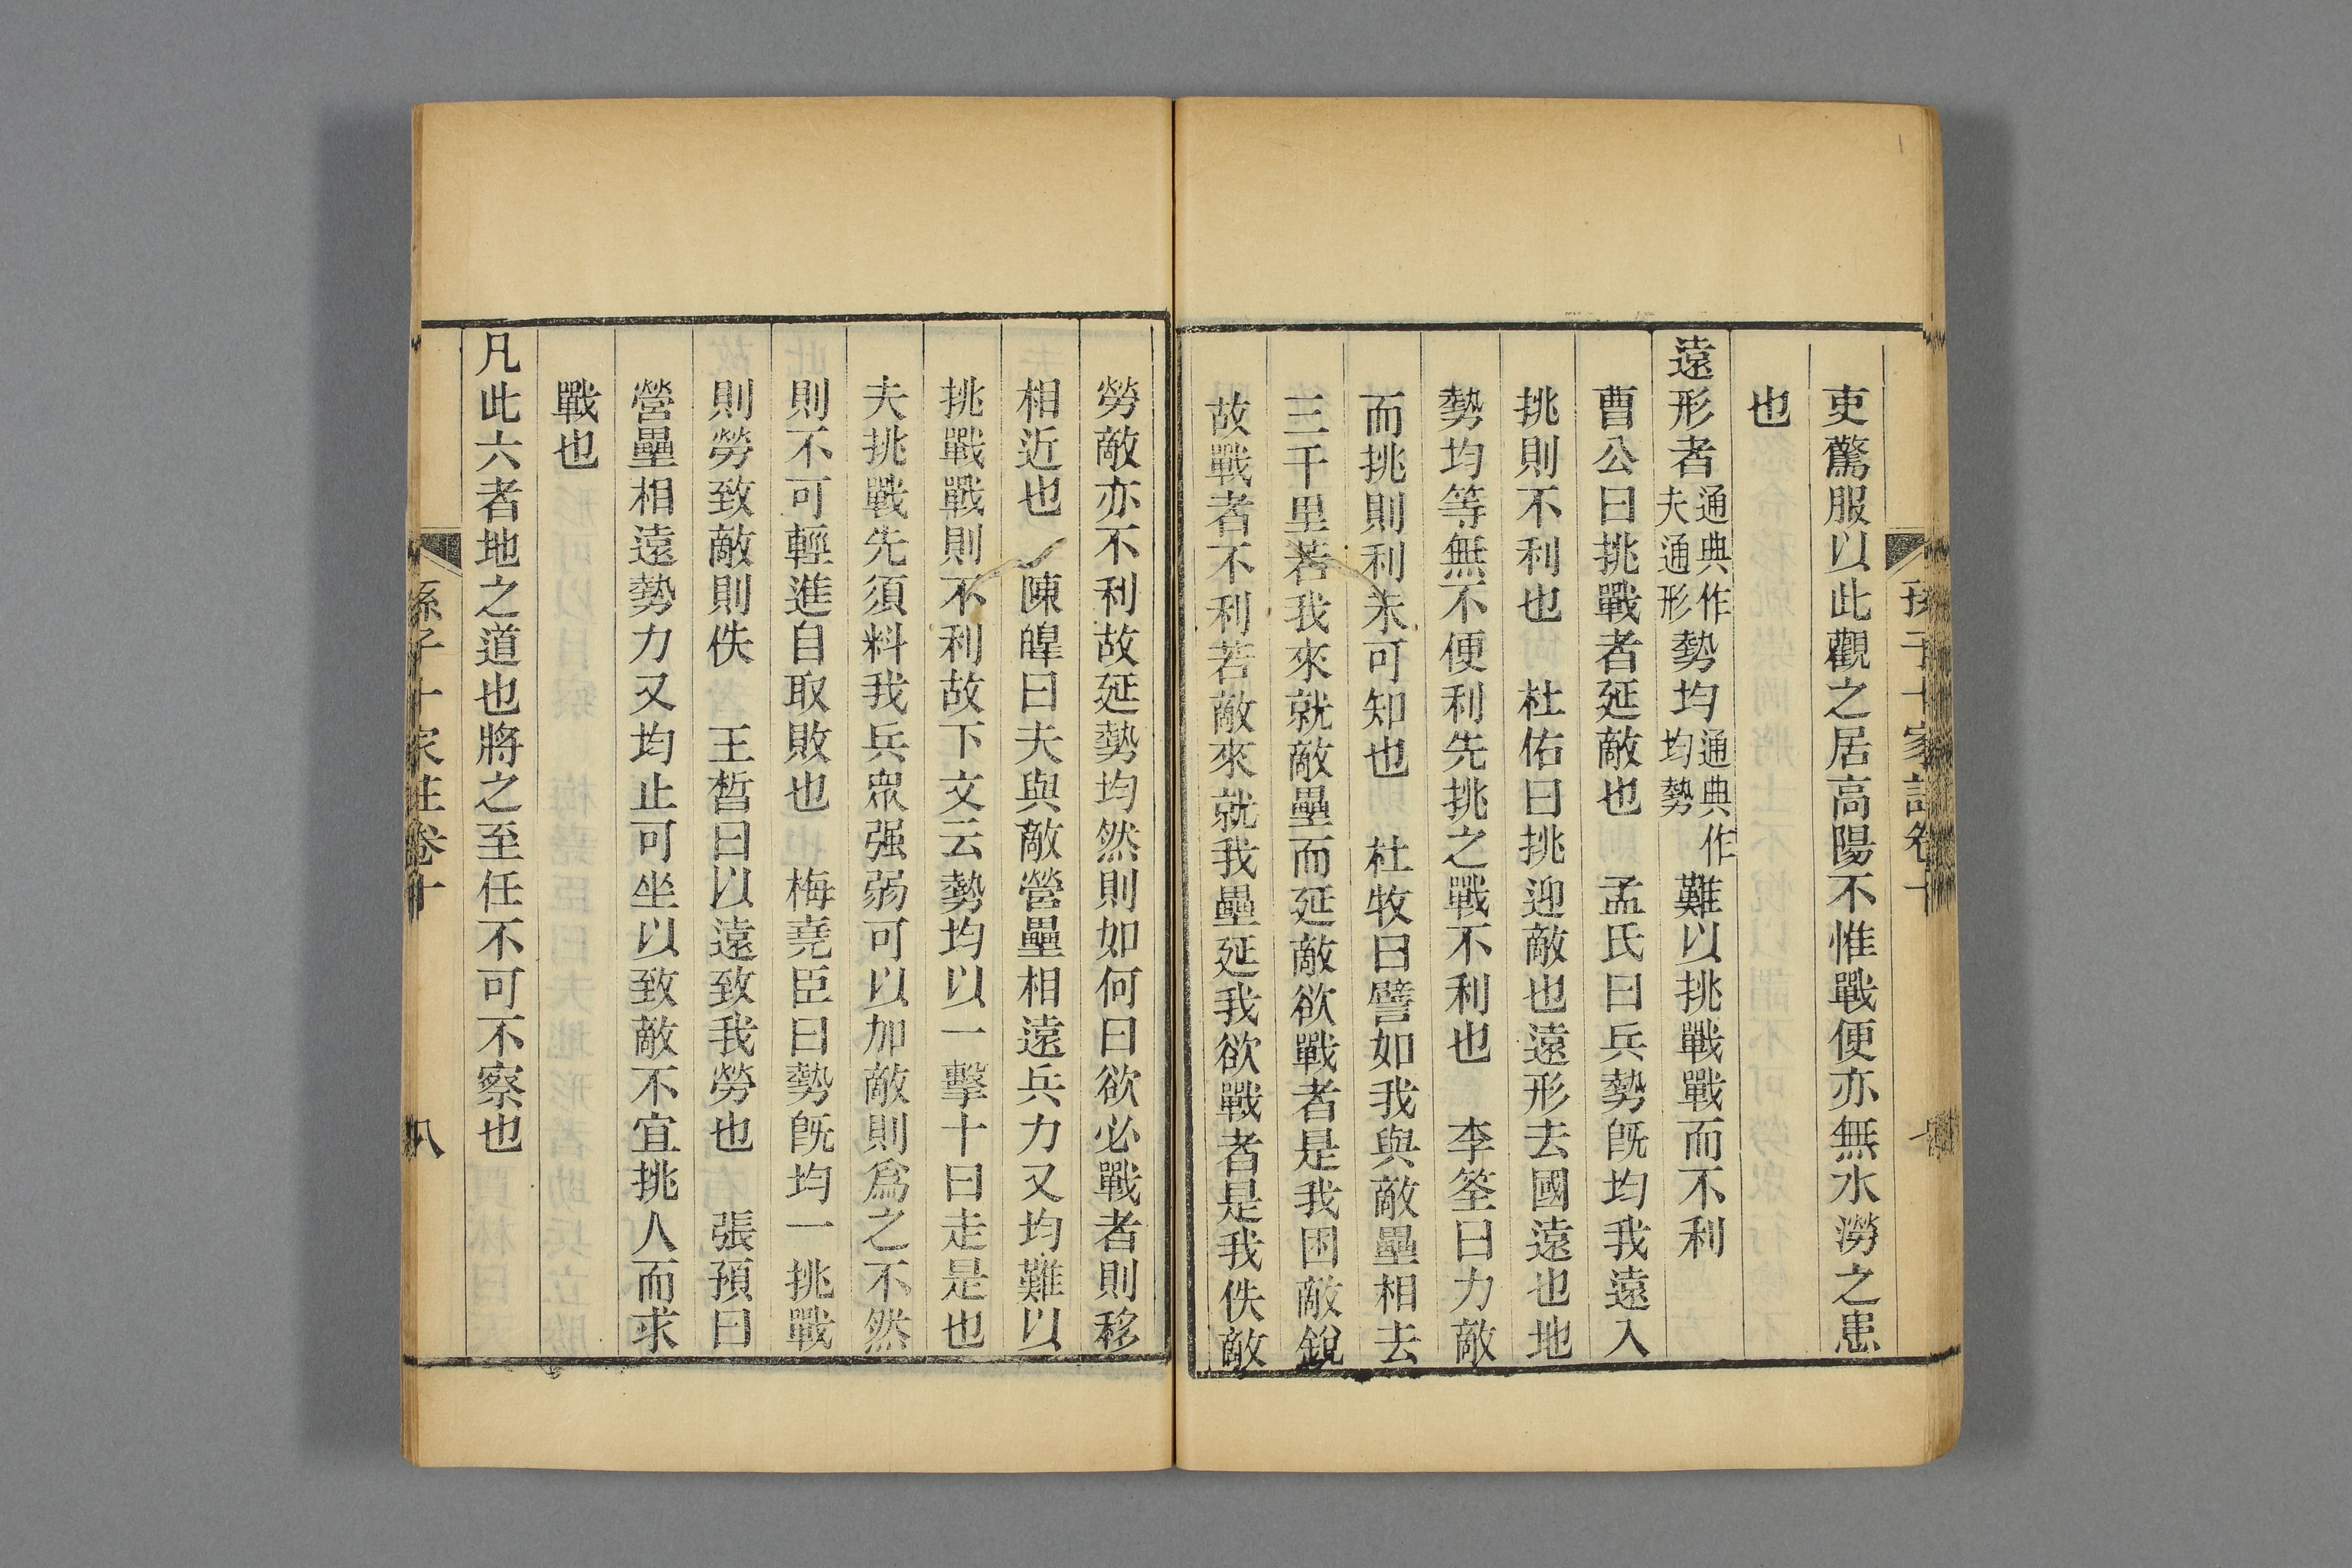 吏驚服以此觀之居高陽不惟戰便亦無水澇之患
也
遠形者通典作夫通形勢均通典作均勢難以挑戰戰而不利
曹公曰挑戰者延敵也　孟氏曰兵勢旣均我遠入
挑則不利也　杜佑曰挑迎敵也遠形去國遠也地
勢均等無不便利先挑之戰不利也　李筌曰力敵
而挑則利未可知也　杜牧曰譬如我與敵壘相去
三千里若我來就敵壘而延敵欲戰者是我困敵銳
故戰者不利若敵來就我壘延我欲戰者是我佚敵
勞敵亦不利故延勢均然則如何曰欲必戰者則移
相近也　陳皥曰夫與敵營壘相遠兵力又均難以
挑戰戰則不利故下文云勢均以一擊十曰走是也
夫挑戰先須料我兵眾强弱可以加敵則爲之不然
則不可輕進自取敗也　梅堯臣曰勢旣均一挑戰
則勞致敵則佚　王晳曰以遠致我勞也　張預曰
營壘相遠勢力又均止可坐以致敵不宜挑人而求
戰也
凡此六者地之道也將之至任不可不察也
孫子十家註卷十
八